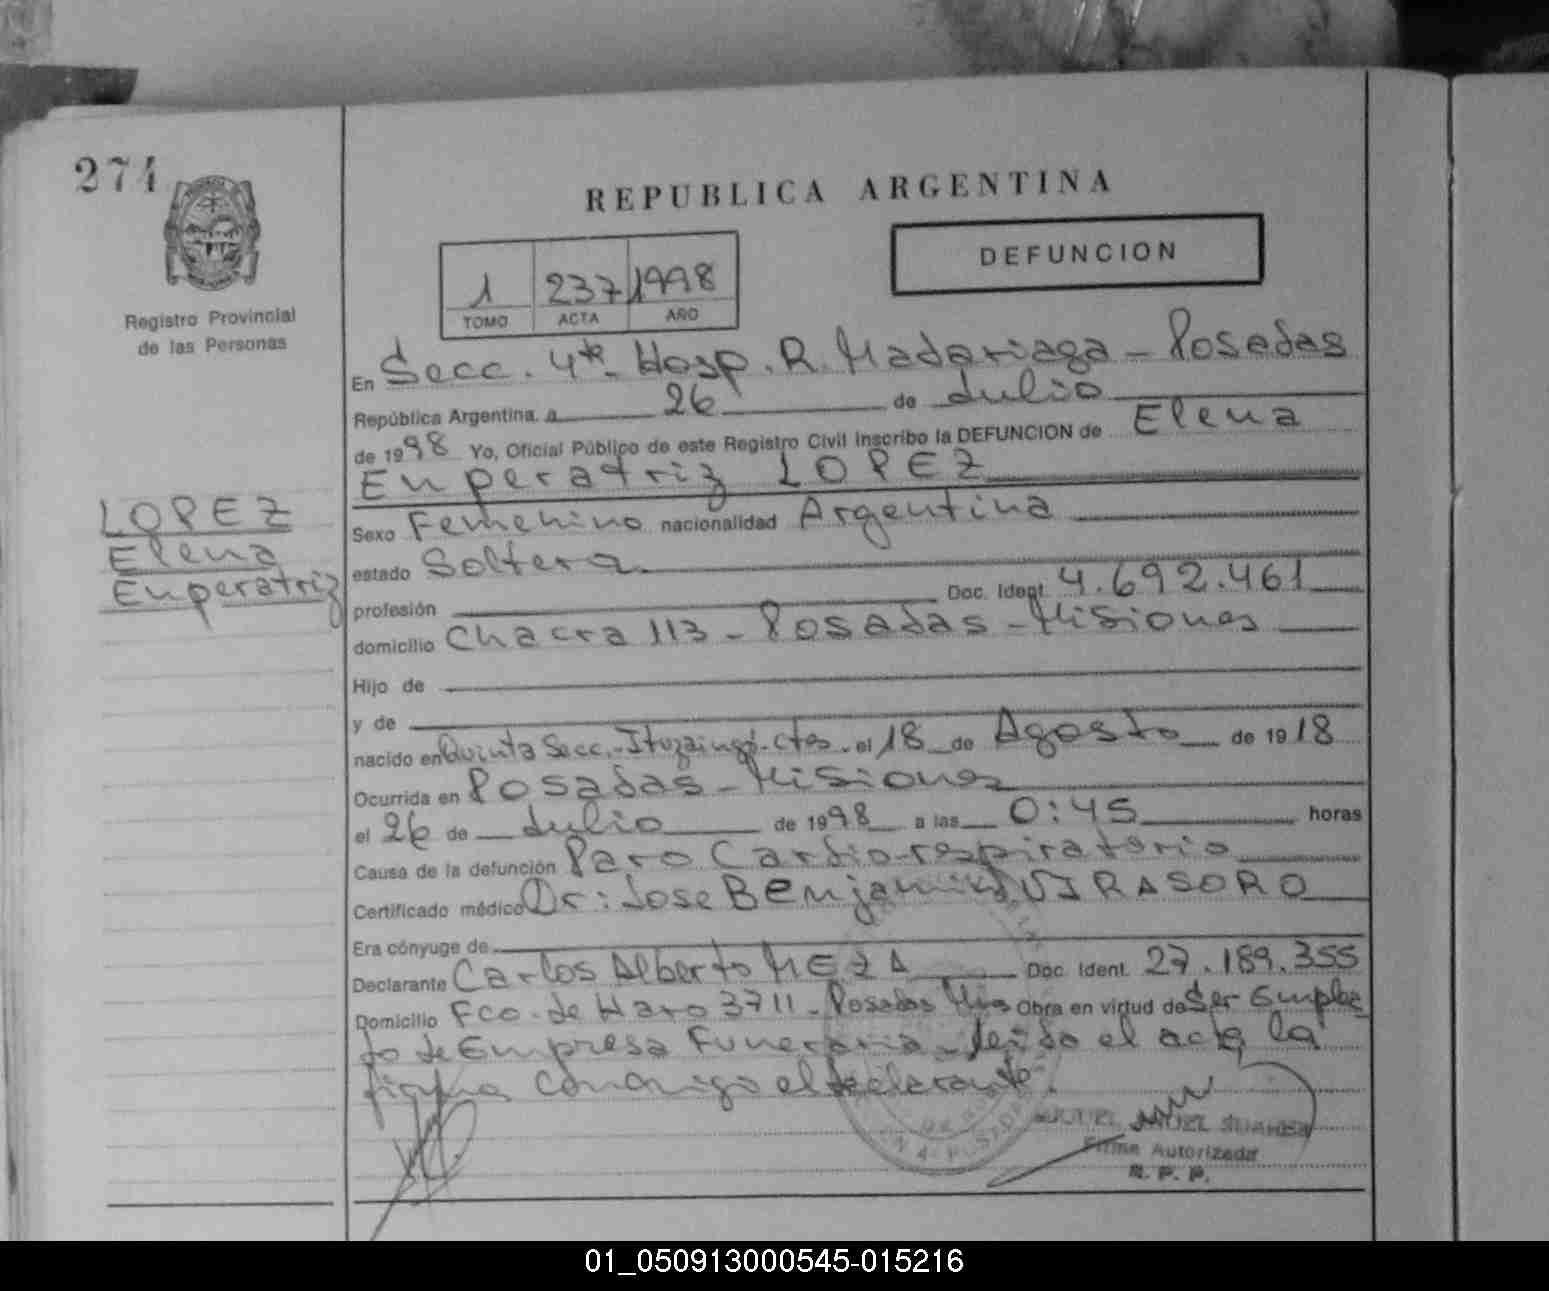 274
Registro Provincial
de las Personas
REPUBLICA ARGENTINA
DEFUNCION
1 237 1998
TOMO ACTA AÑO
En Secc. 4ta. Hosp. R. Madariaga - Posadas
República Argentina, a 26 de Julio
de 1998 Yo, Oficial Público de este Registro Civil inscribo la DEFUNCION de Elena
Enperatriz LOPEZ
LOPEZ
Elena
Enperatriz
Sexo Femenino nacionalidad Argentina
estado Soltera
profesión Doc. Ident. 4.692.461
domicilio Chacra 113 - Posadas - Misiones
Hijo de
y de
nacido en Quinta Secc. - Ituzaingó - Ctes. el 18 de Agosto de 1918
Ocurrida en Posadas - Misiones
el 26 de Julio de 1998 a las 0:45 horas
Causa de la defunción Paro Cardio-respiratorio
Certificado médico Dr: Jose Benjamin VIRASORO
Era cónyuge de
Declarante Carlos Alberto MEZA Doc. Ident. 27.189.355
Domicilio Fco. de Haro 3711 - Posadas Mnes Obra en virtud de Ser Emplea
do de Empresa Funeraria - leido el acta la
firma conmigo el declarante.
SUAREZ
Firma Autorizada
R. P. P.
01_050913000545-015216